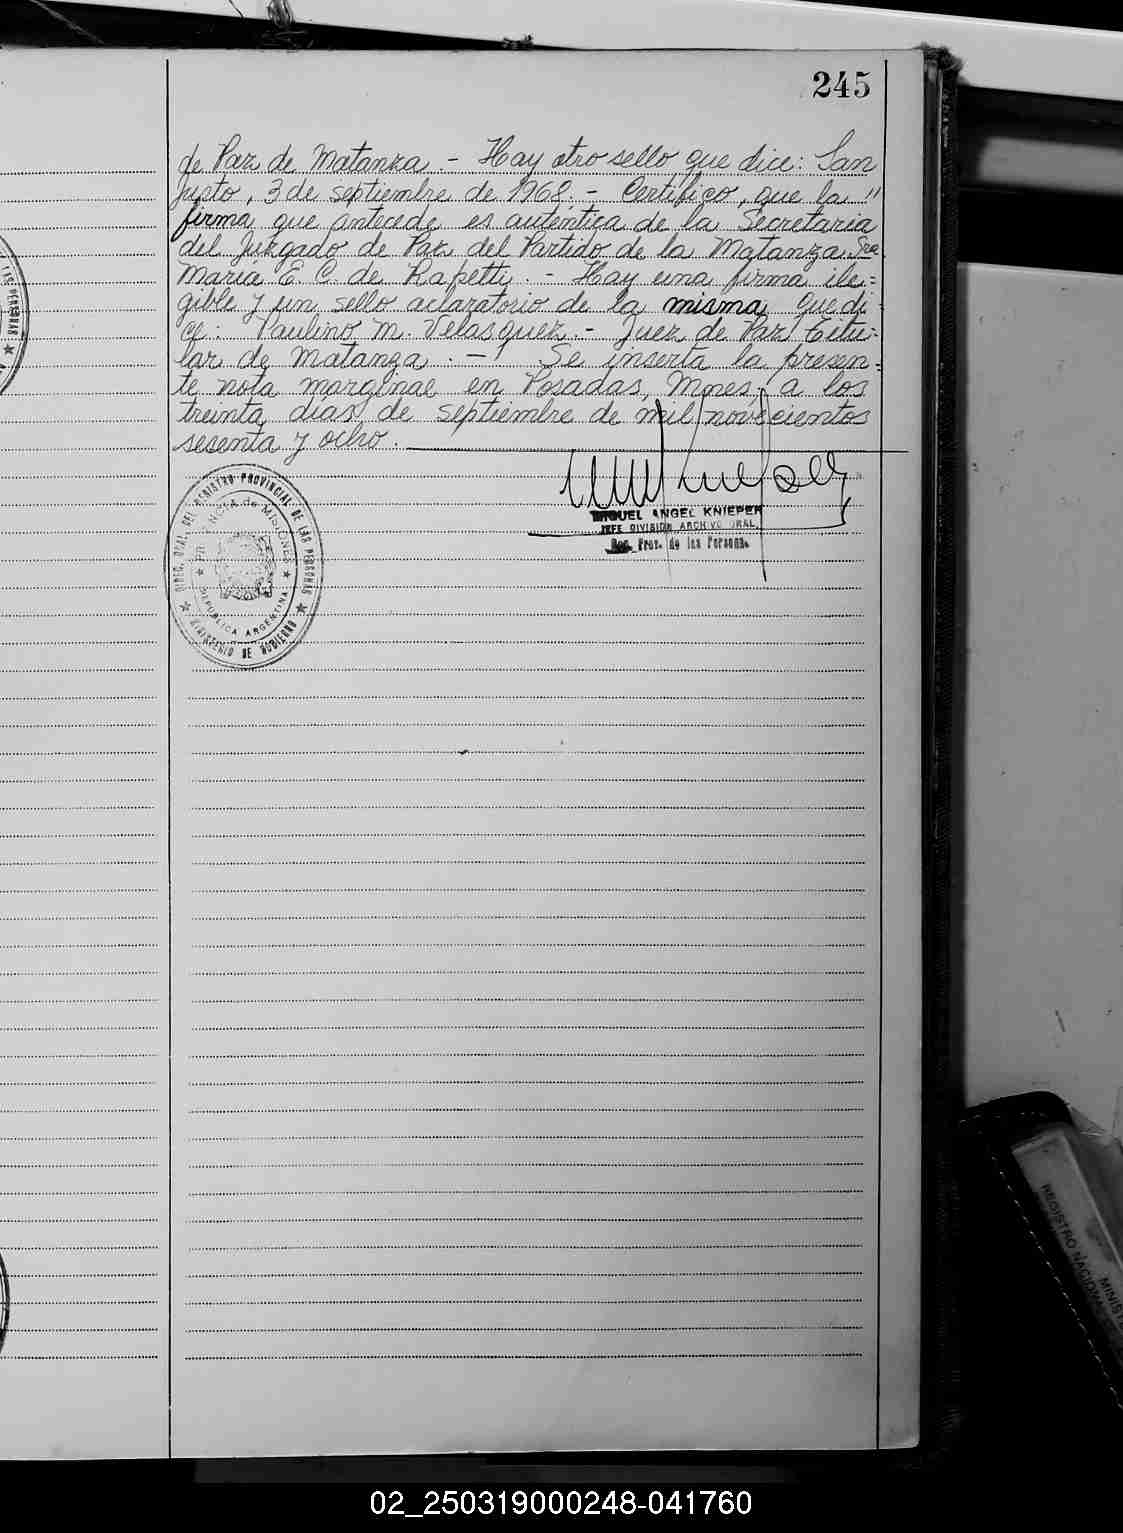 245
de Paz de Matanza. - Hay otro sello que dice: San
Justo, 3 de septiembre de 1968. - Certifico, que la "
firma que antecede es auténtica de la Secretaria
del Juzgado de Paz del Partido de la Matanza Sra
Maria E. C. de Rapetti. - Hay una firma ile=
gible y un sello aclaratorio de la misma que di
ce: Paulino M. Velasquez. - Juez de Paz Titu-
lar de Matanza. - Se inserta la presen=
te nota marginal en Posadas, Mnes, a los
treinta dias de septiembre de mil novecientos
sesenta y ocho.
MIGUEL ANGEL KNIEPER
JEFE DIVISION ARCHIVO GRAL.
Reg. Prov. de las Personas
DIREC. GRAL. DEL REGISTRO PROVINCIAL DE LAS PERSONAS
PROVINCIA de MISIONES
REPUBLICA ARGENTINA
MINISTERIO DE GOBIERNO
LAS PERSONAS
REGISTRO NACIONAL
MINIST
02_250319000248-041760